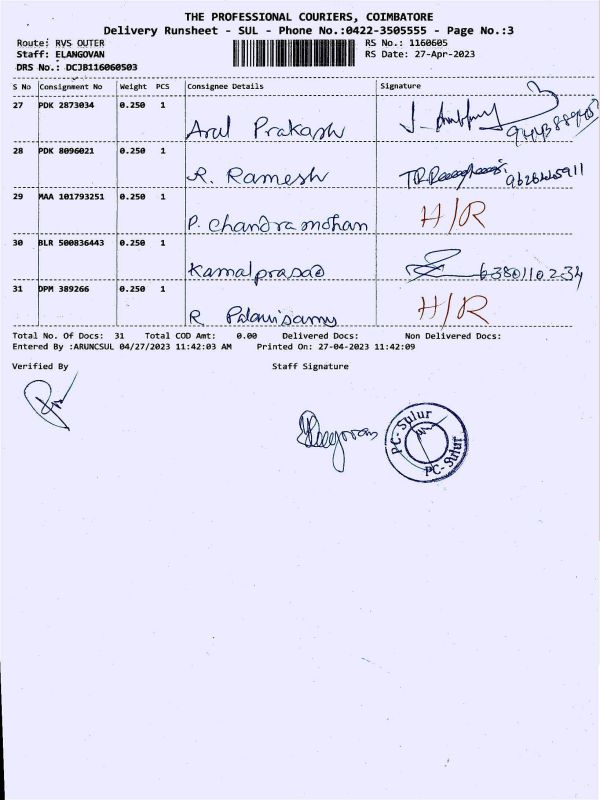 THE PROFESSIONAL COURIERS, COIMBATORE
Delivery Runsheet - SUL - Phone No.:0422-3505555 - Page No.:3
Route: RVS OUTER RS No.: 1160605
Staff: ELANGOVAN RS Date: 27-Apr-2023
DRS No.: DCJB116060503
S No Consignment No Weight PCS Consignee Details Signature
27 PDK 2873034 0.250 1
Arul Prakash
28 PDK 8096021 0.250 1
R. Ramesh
29 MAA 101793251 0.250 1 H/R
P. Chandramohan
30 BLR 500836443 0.250 1
Kamalprasad 6380110234
31 DPM 389266 0.250 1 H/R
R Palanisamy
Total No. Of Docs: 31 Total COD Amt: 0.00 Delivered Docs: Non Delivered Docs:
Entered By :ARUNCSUL 04/27/2023 11:42:03 AM Printed On: 27-04-2023 11:42:09
Verified By Staff Signature
PC-Sulur
PC-Sulur